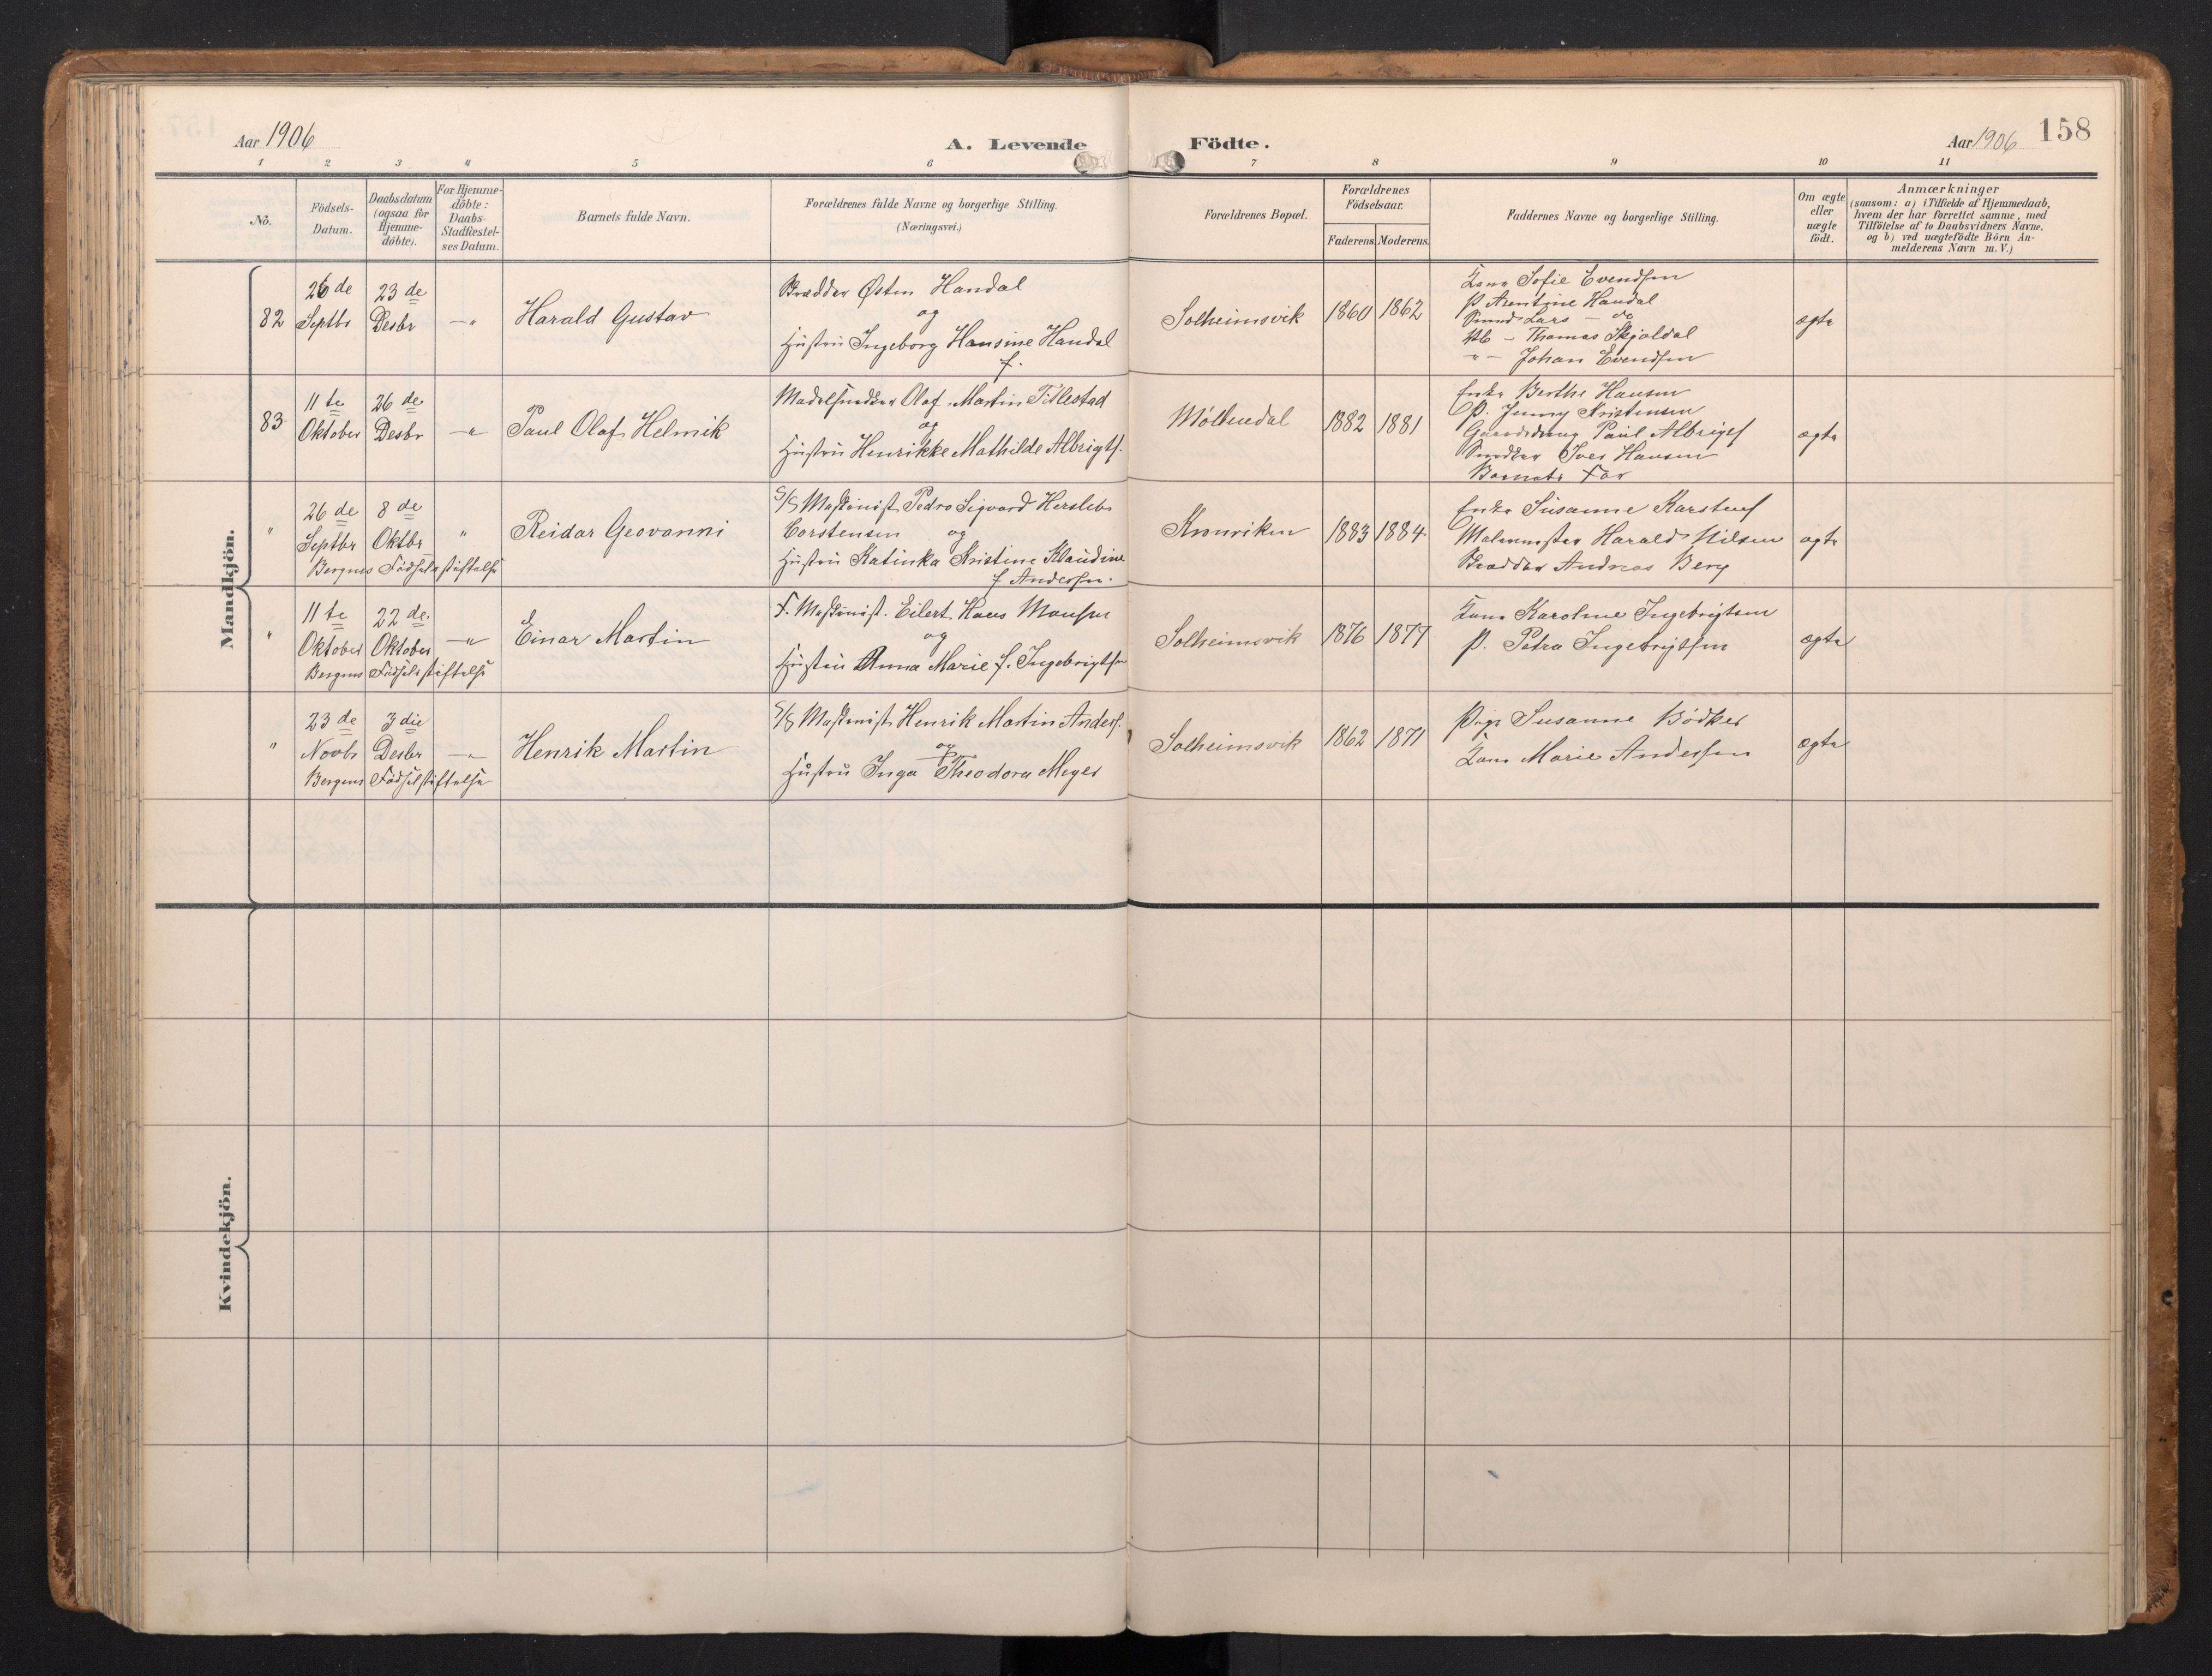 158
Aar 1906
A. Levende Födte.
Aar 1906
1 2 3 4 5 6 7 8 9 10 11
No.
Födsels-
Datum.
Daabsdatum
(ogsaa for
Hjemme-
döbte).
For Hjemme-
döbte:
Daabs-
Stadfæstel-
ses Datum.
Barnets fulde Navn.
Forældrenes fulde Navne og borgerlige Stilling.
(Næringsvei.)
Forældrenes Bopæl.
Forældrenes
Födselsaar.
Faderens. Moderens.
Faddernes Navne og borgerlige Stilling.
Om ægte
eller
uægte
födt.
Anmærkninger
(saasom: a) i Tilfælde af Hjemmedaab,
hvem der har forrettet samme, med
Tilföielse af to Daabsvidners Navne.
og b) ved uægtefödte Börn An-
melderens Navn m. V.)
Mandkjön.
82
26 de
Septbr
23 de
Desbr
—"
Harald Gustav
Østen Handal
og
Hustru Ingeborg Hansine Handal
f.
Solheimsvik
1860
1862
Sofie Evendsen
P. Arentine Handal
Lars — do
— Thomas Skjoldal
" — Johan Evendsen
ægte
83
11 te
Oktober
26 de
Desbr
—"
Paul Olaf Helmik
Olaf Martin Titlestad
og
Hustru Henrikke Mathilde Albrigts.
Møllendal
1882
1881
Enke Berthe Hansen
P. Jenny Kristensen
Paul Albrigts
Iver Hansen
Barnets Far
ægte
"
26 de
Septbr
8 de
Oktbr
"
Bergens Fødselsstiftelse
Reidar Geovanni
S/S Maskinist Pedro Sigvard Hersleb
Corstensen og
Hustru Katinka Kristine Klaudine
f Andersen.
Kronviken
1883
1884
Enke Susanne Karstens
Malermester Harald Nilsen
Andreas Berg
ægte
"
11 te
Oktober
22 de.
Oktober
—"
Bergens Fødselsstiftelse
Einar Martin
F. Maskinist. Eilert Hans Monsen
og
Hustru Anna Marie f. Ingebrigtsen
Solheimsvik
1876
1877
Karoline Ingebrigtsen
P. Petra Ingebrigtsen
ægte
"
23 de
Novbr
3 die
Desbr
—"
Bergens Fødselsstiftelse
Henrik Martin
S/S Maskinist Henrik Martin Anders.
og
Hustru Inga Theodora Meyer
Solheimsvik
1862
1871
Pige Susanne Bødker
Marie Andersen
ægte
Kvindekjön.